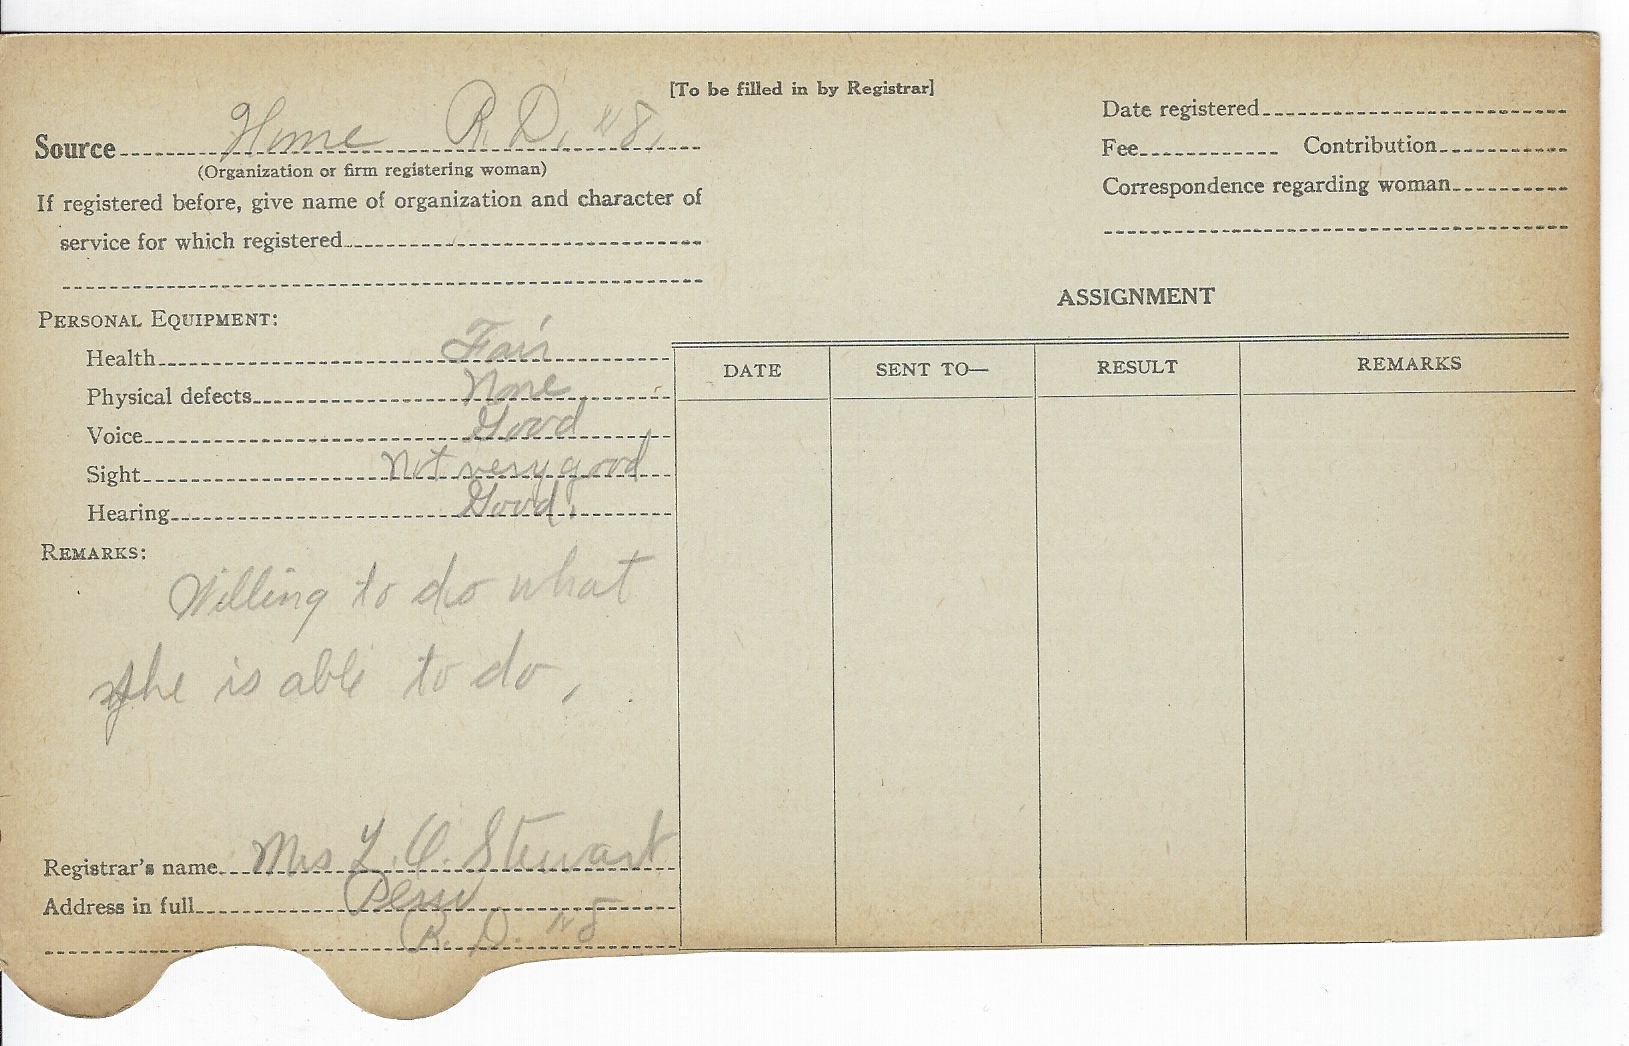 [To be filled in by Registrar]
Source Home R. D. #8.
(Organization or firm registering woman)
If registered before, give name of organization and character of
service for which registered
PERSONAL EQUIPMENT:
Health Fair
Physical defects None
Voice Good
Sight Not very good
Hearing Good.
REMARKS:
Willing to do what
she is able to do.
Registrar's name Mrs L. O. Stewart
Address in full
R. D. #8
Date registered
Fee Contribution
Correspondence regarding woman
ASSIGNMENT
DATE SENT TO— RESULT REMARKS